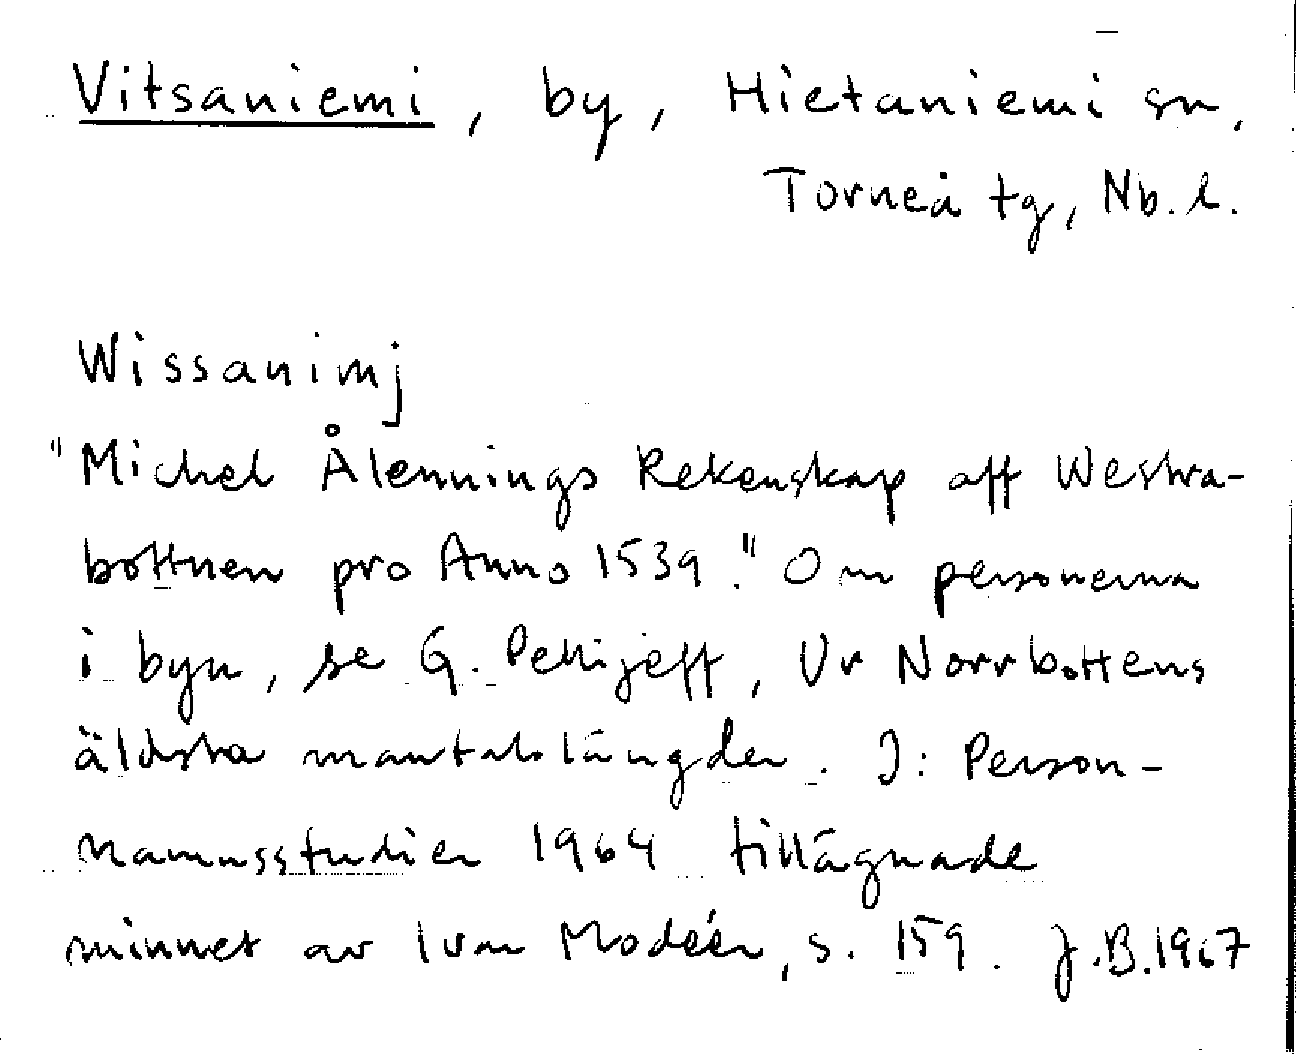 Vitsaniemi, by, Hietaniemi sn,
Torneå tg, Nb. l.
Wissanimj
"Michel Ålennings Rekenskap aff Westra-
bottnen pro Anno 1539." Om personerna
i byn, se G. Pellijeff, Ur Norrbottens
äldsta mantalslängder. I: Person-
namnsstudier 1964 tillägnade
minnet av Ivar Modéer, s. 159. J.B.1967